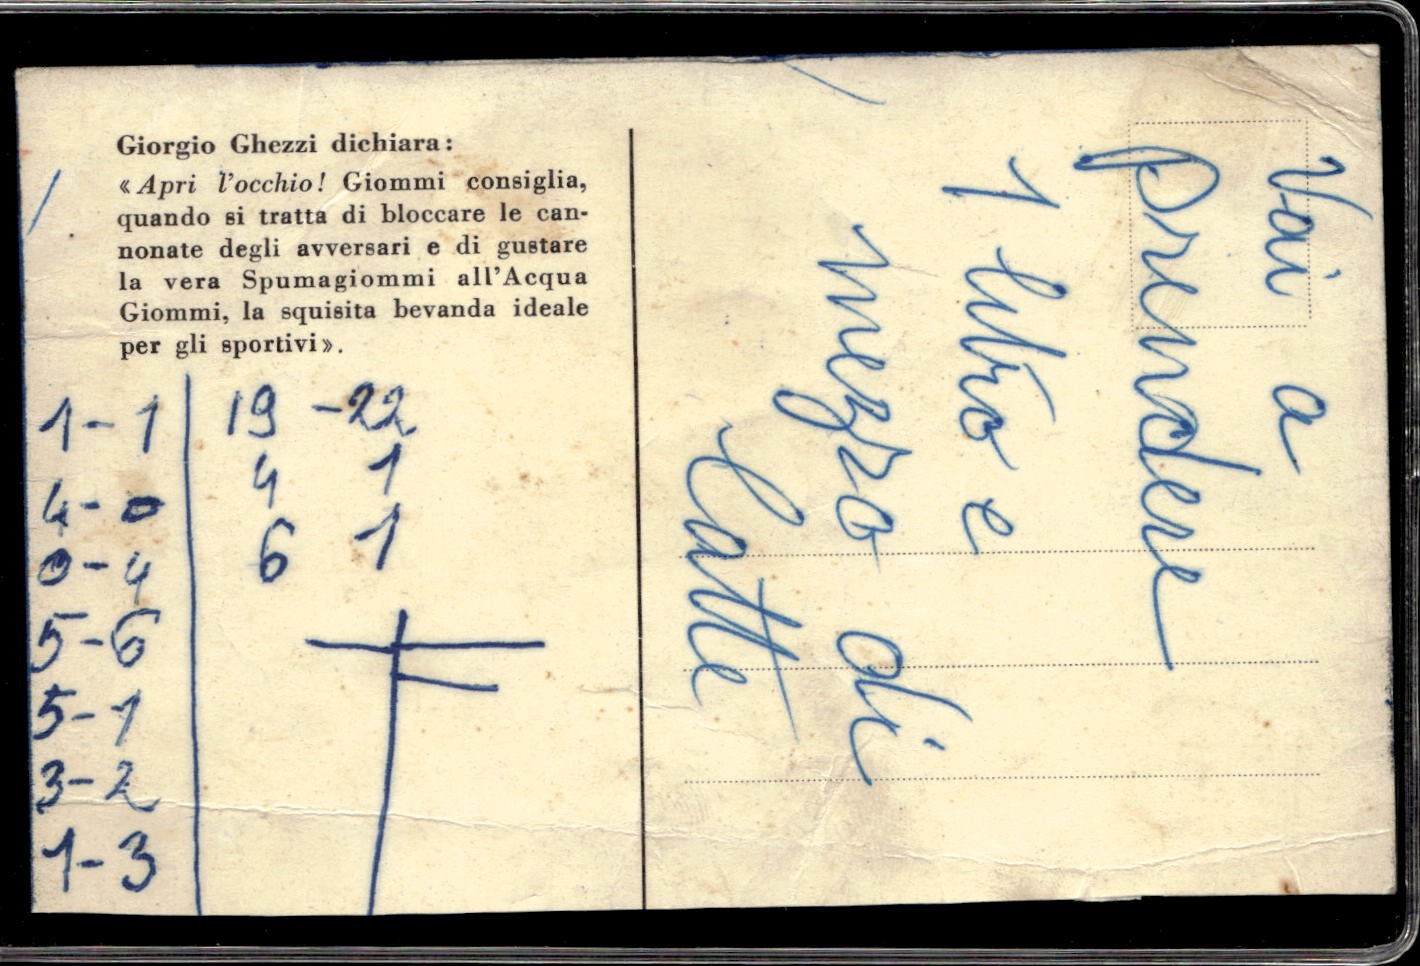 Giorgio Ghezzi dichiara:
«Apri l'occhio! Giommi consiglia,
quando si tratta di bloccare le can-
nonate degli avversari e di gustare
la vera Spumagiommi all'Acqua
Giommi, la squisita bevanda ideale
per gli sportivi».
1-1
4-0
0-4
5-6
5-1
3-2
1-3
19 -22
4 1
6 1
Vai a
prendere
1 litro e
mezzo di
latte